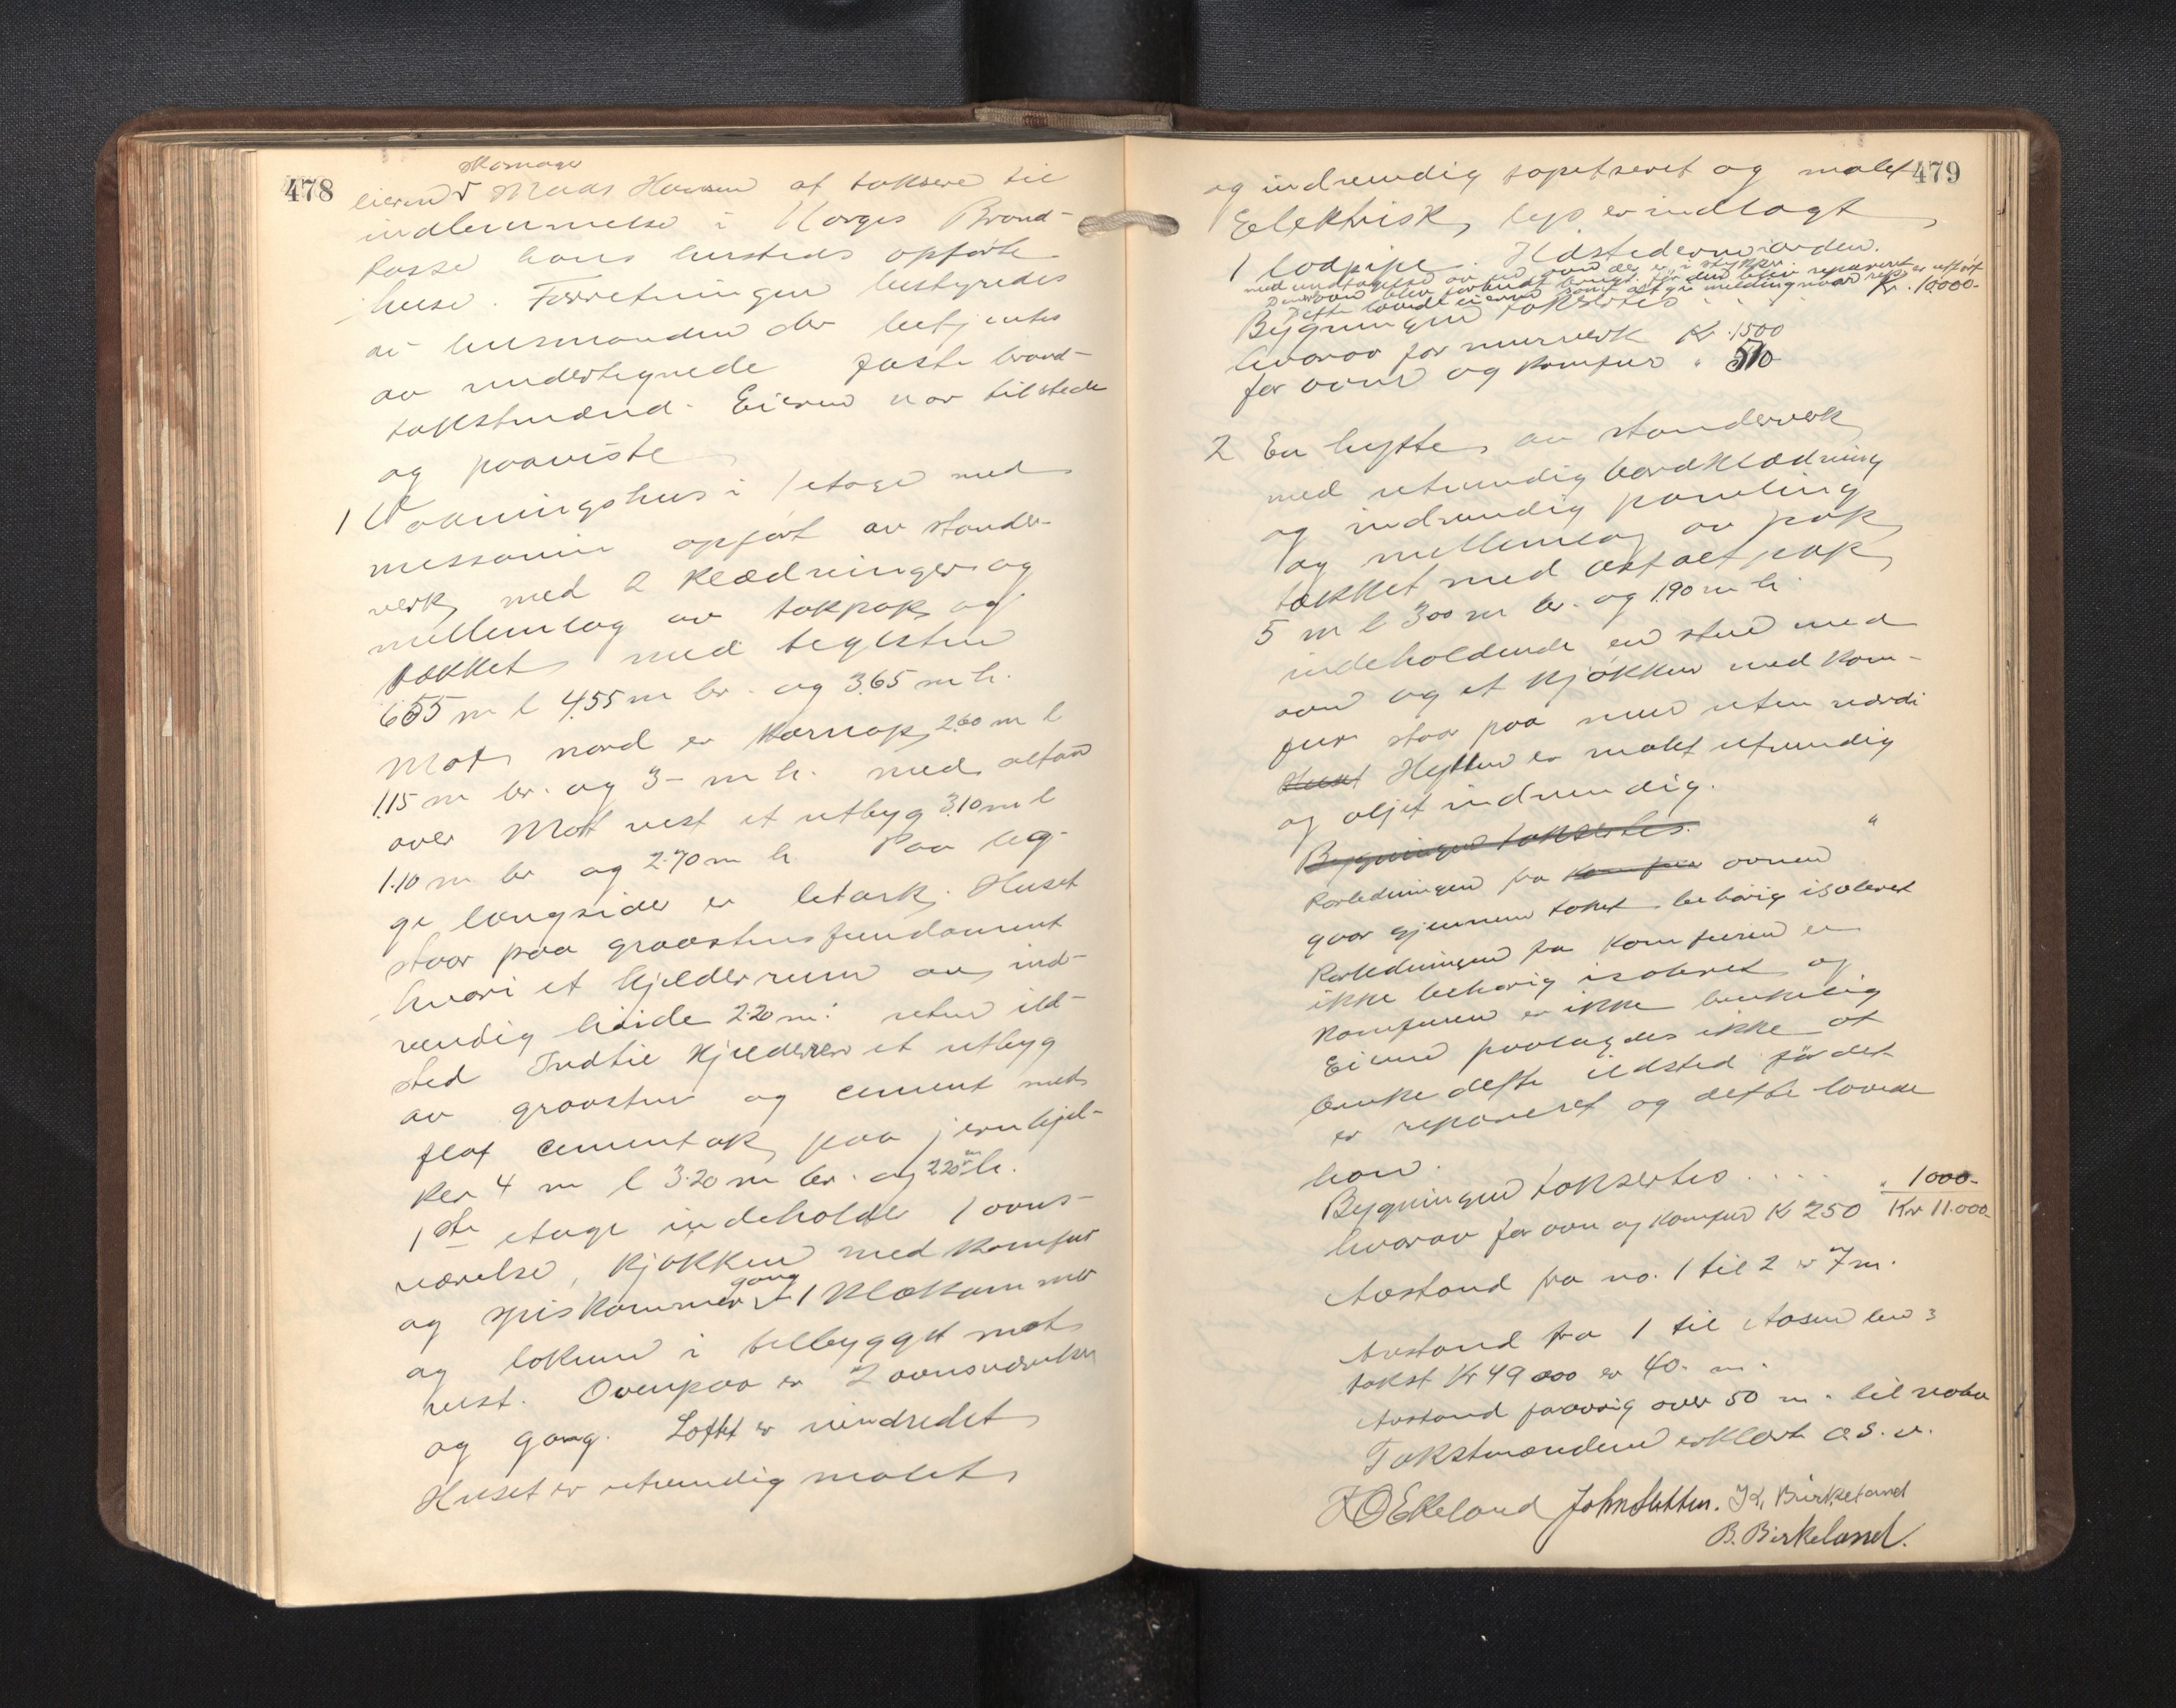 478
Skomager
eieren Mads Hansen at taksere til
indlemmelse i Norges Brand-
kasse hans hersteds opførte
huse. Forretningen bestyredes
av lensmanden der betjentes
av undertegnede faste brand-
takstmænd. Eieren var tilstede
og paaviste
1 Vaaningshus i 1 etage med
messanin opført av stender-
verk med 2 klædninger og
mellemlag av takpap og
tækket med teglsten
655 m l 4.55 m br. og 3.65 m h.
Mot nord er karnap 2.60 m l
1.15 m br. og 3- m h. med altan
over Mot vest et utbyg 3.10 m l
1.10 m br og 2.70 m h Paa beg-
ge langsider er letark. Huset
staar paa graastensfundament
hvori et kjelderrum av ind-
vendig høide 2.20 m. uten ild-
sted Indtil kjelderen et utbyg
av graasten og cement med
flat cementtak paa jernbjel-
ker 4 m l 3.20 m br. og 220 m h.
1ste etage indeholder 1 ovns-
værelse, kjøkken med komfur
gang
og spiskammer 1 klækammer
og lokum i tilbygget mot
vest. Ovenpaa er 2 ovnsværelser
og gang. Loftet er uindredet
Huset er utvendig malet
479
og indvendig tapetseret og malet
Elektrisk lys er indlagt
1 lodpipe. Ildstederne i orden.
med undtagelse av en ovn der er i stykker.
Denne ovn blev forbudt brugt før den blev reparert
Dette lovede eieren samt at gi melding naar rep. er utført
Bygningen takseres . . . Kr. 10000-
hvorav for murverk Kr. 1500
for ovne og komfur " 510
2 En hytte av stenderverk
med utvendig bordklædning
og indvendig paneling
og mellemlag av pap
tækket med asfaltpap
5 m l 300 m br. og 1.90 m h
indeholdende en stue med
ovn og et kjøkken med kom-
fur staar paa mur uten værdi
Huset Hytten er malet utvendig
og oljet indvendig.
Bygningen takseres. "
Rørledningen fra komfur ovnen
gaar gjennem taket behørig isoleret
Rørledningen fra komfuren er
ikke behørig isoleret og
komfuren er ikke brukelig
Eieren paalagdes ikke at
bruke dette ildsted før det
er reparert og dette lovede
han.
Bygningen takseres . . . " 1000-
hvorav for ovn og komfur Kr 250 Kr 11.000-
Avstand fra no. 1 til 2 er 7 m.
Avstand fra 1 til Aasen
takst Kr 49000 er 40. m.
Avstand forøvrig over 50 m. til nabo
Takstmændene erklært o.s.v.
O Ekeland John Sletten. K. Birkeland
B. Birkeland.